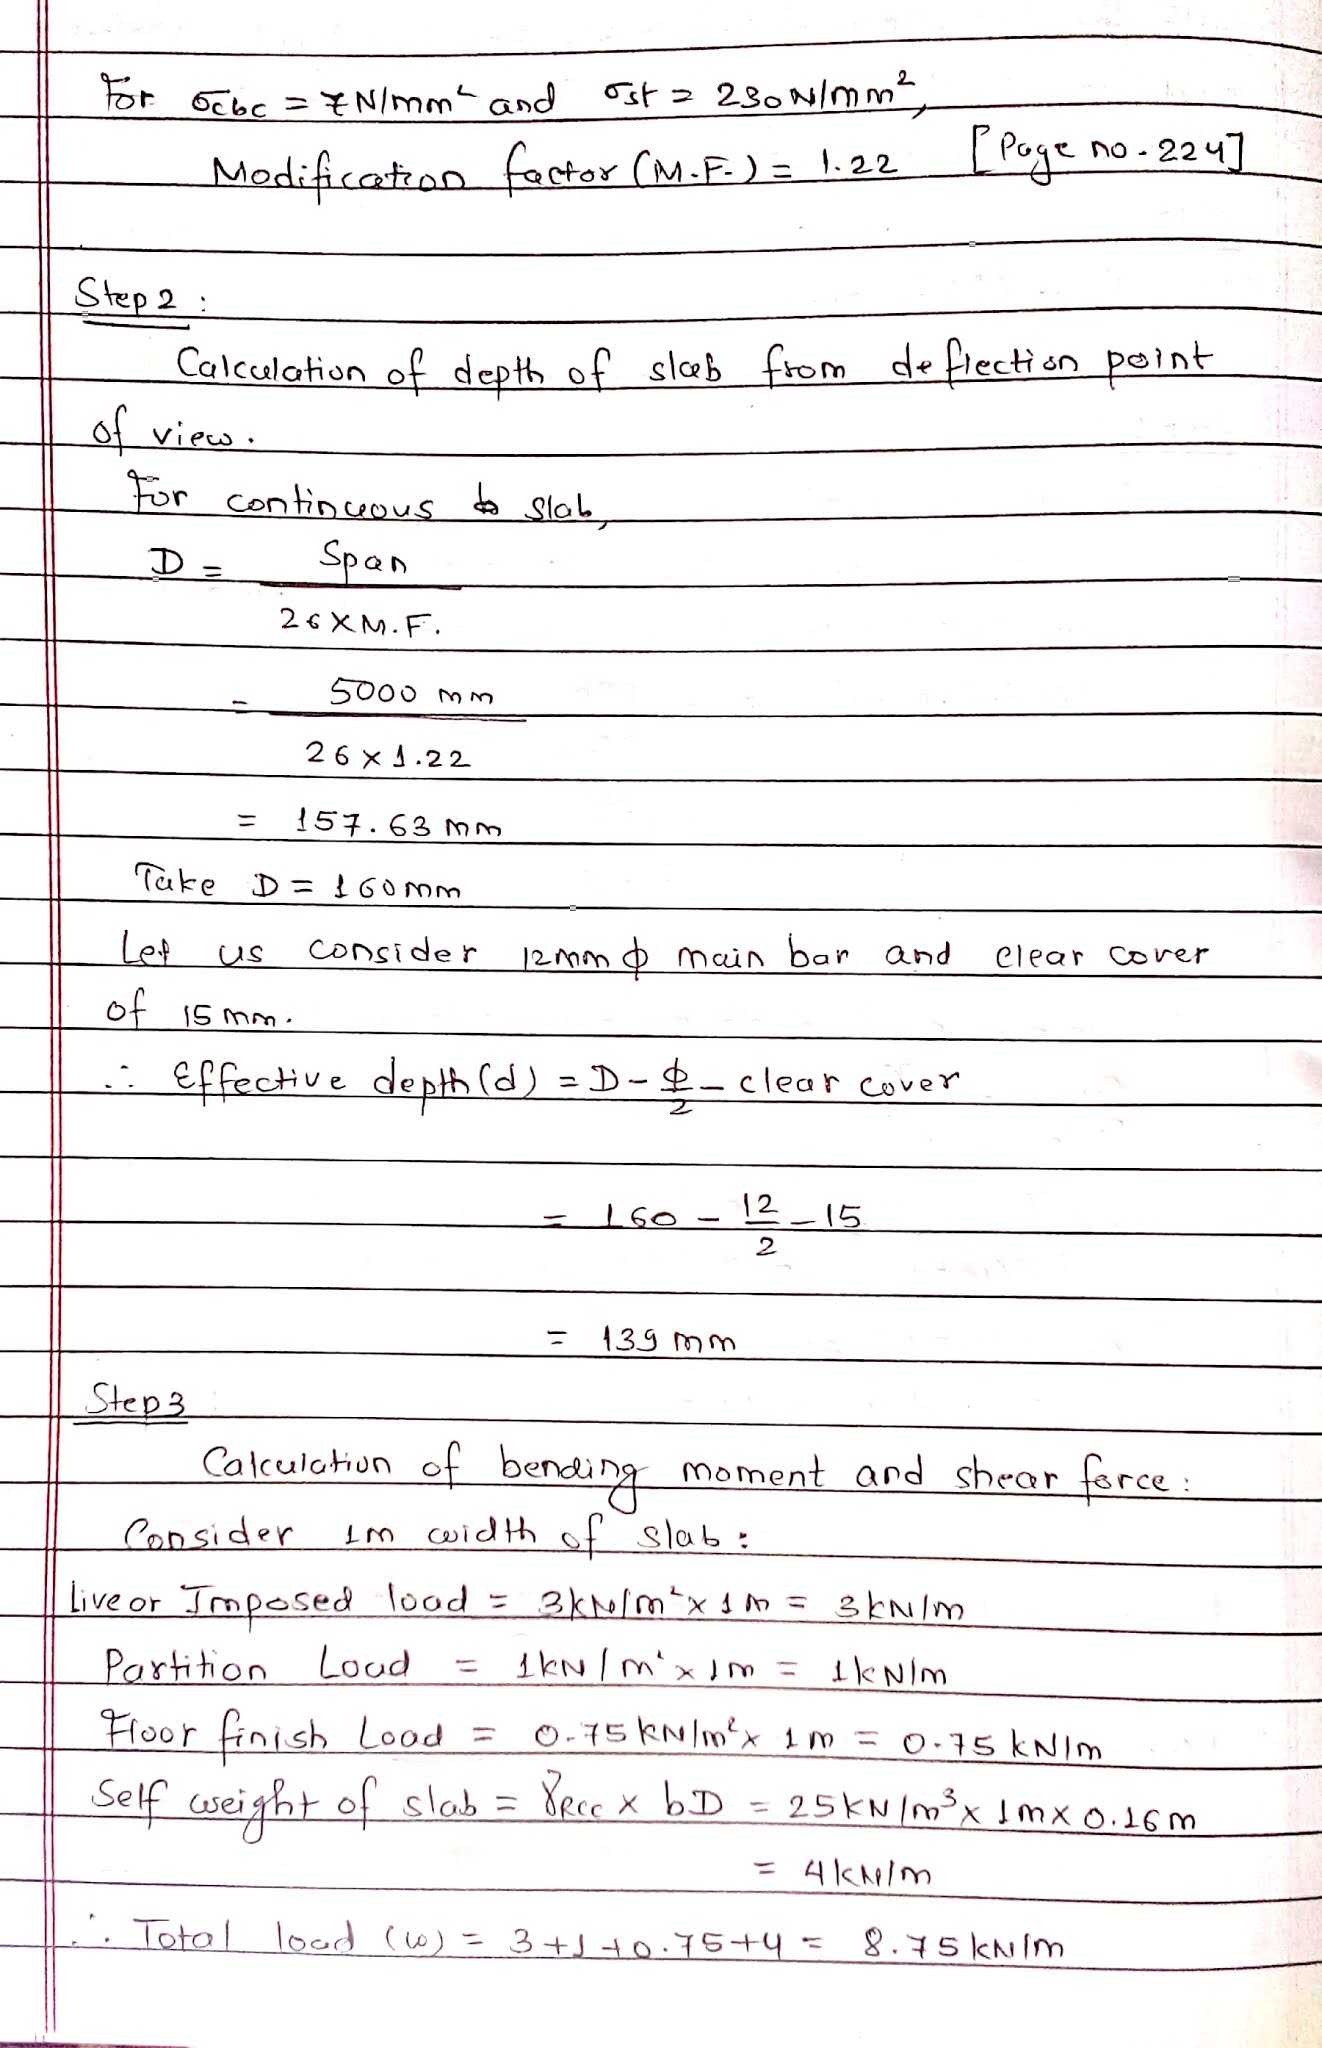 For σcbc = 7N/mm² and σst = 230N/mm²,
Modification factor (M.F.) = 1.22 [Page no.224]
Step 2 :
Calculation of depth of slab from deflection point
of view.
For continuous slab,
D = Span
26×M.F.
= 5000 mm
26×1.22
= 157.63 mm
Take D = 160mm
Let us consider 12mm ϕ main bar and clear cover
of 15mm.
∴ Effective depth(d) = D - ϕ/2 - clear cover
= 160 - 12/2 - 15
= 139 mm
Step3
Calculation of bending moment and shear force:
Consider 1m width of slab:
Live or Imposed load = 3kN/m² × 1m = 3kN/m
Partition Load = 1kN/m² × 1m = 1kN/m
Floor finish Load = 0.75kN/m² × 1m = 0.75kN/m
Self weight of slab = γRCC × bD = 25kN/m³ × 1m × 0.16m
= 4kN/m
∴ Total load (w) = 3+1+0.75+4 = 8.75kN/m